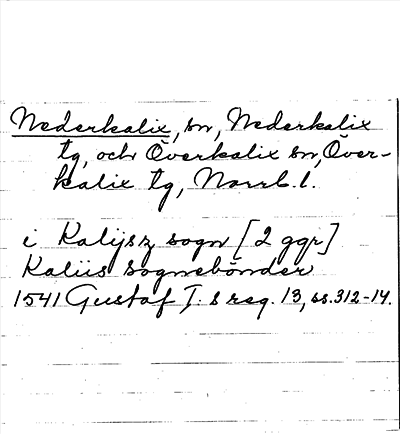 Nederkalix, sn, Nederkalix
tg, och Överkalix sn, Över-
kalix tg, Norrb. l.
i Kalijsz sogn [2 ggr]
Kaliis sognebönder
1541 Gustaf I:s reg. 13, ss. 312-14.